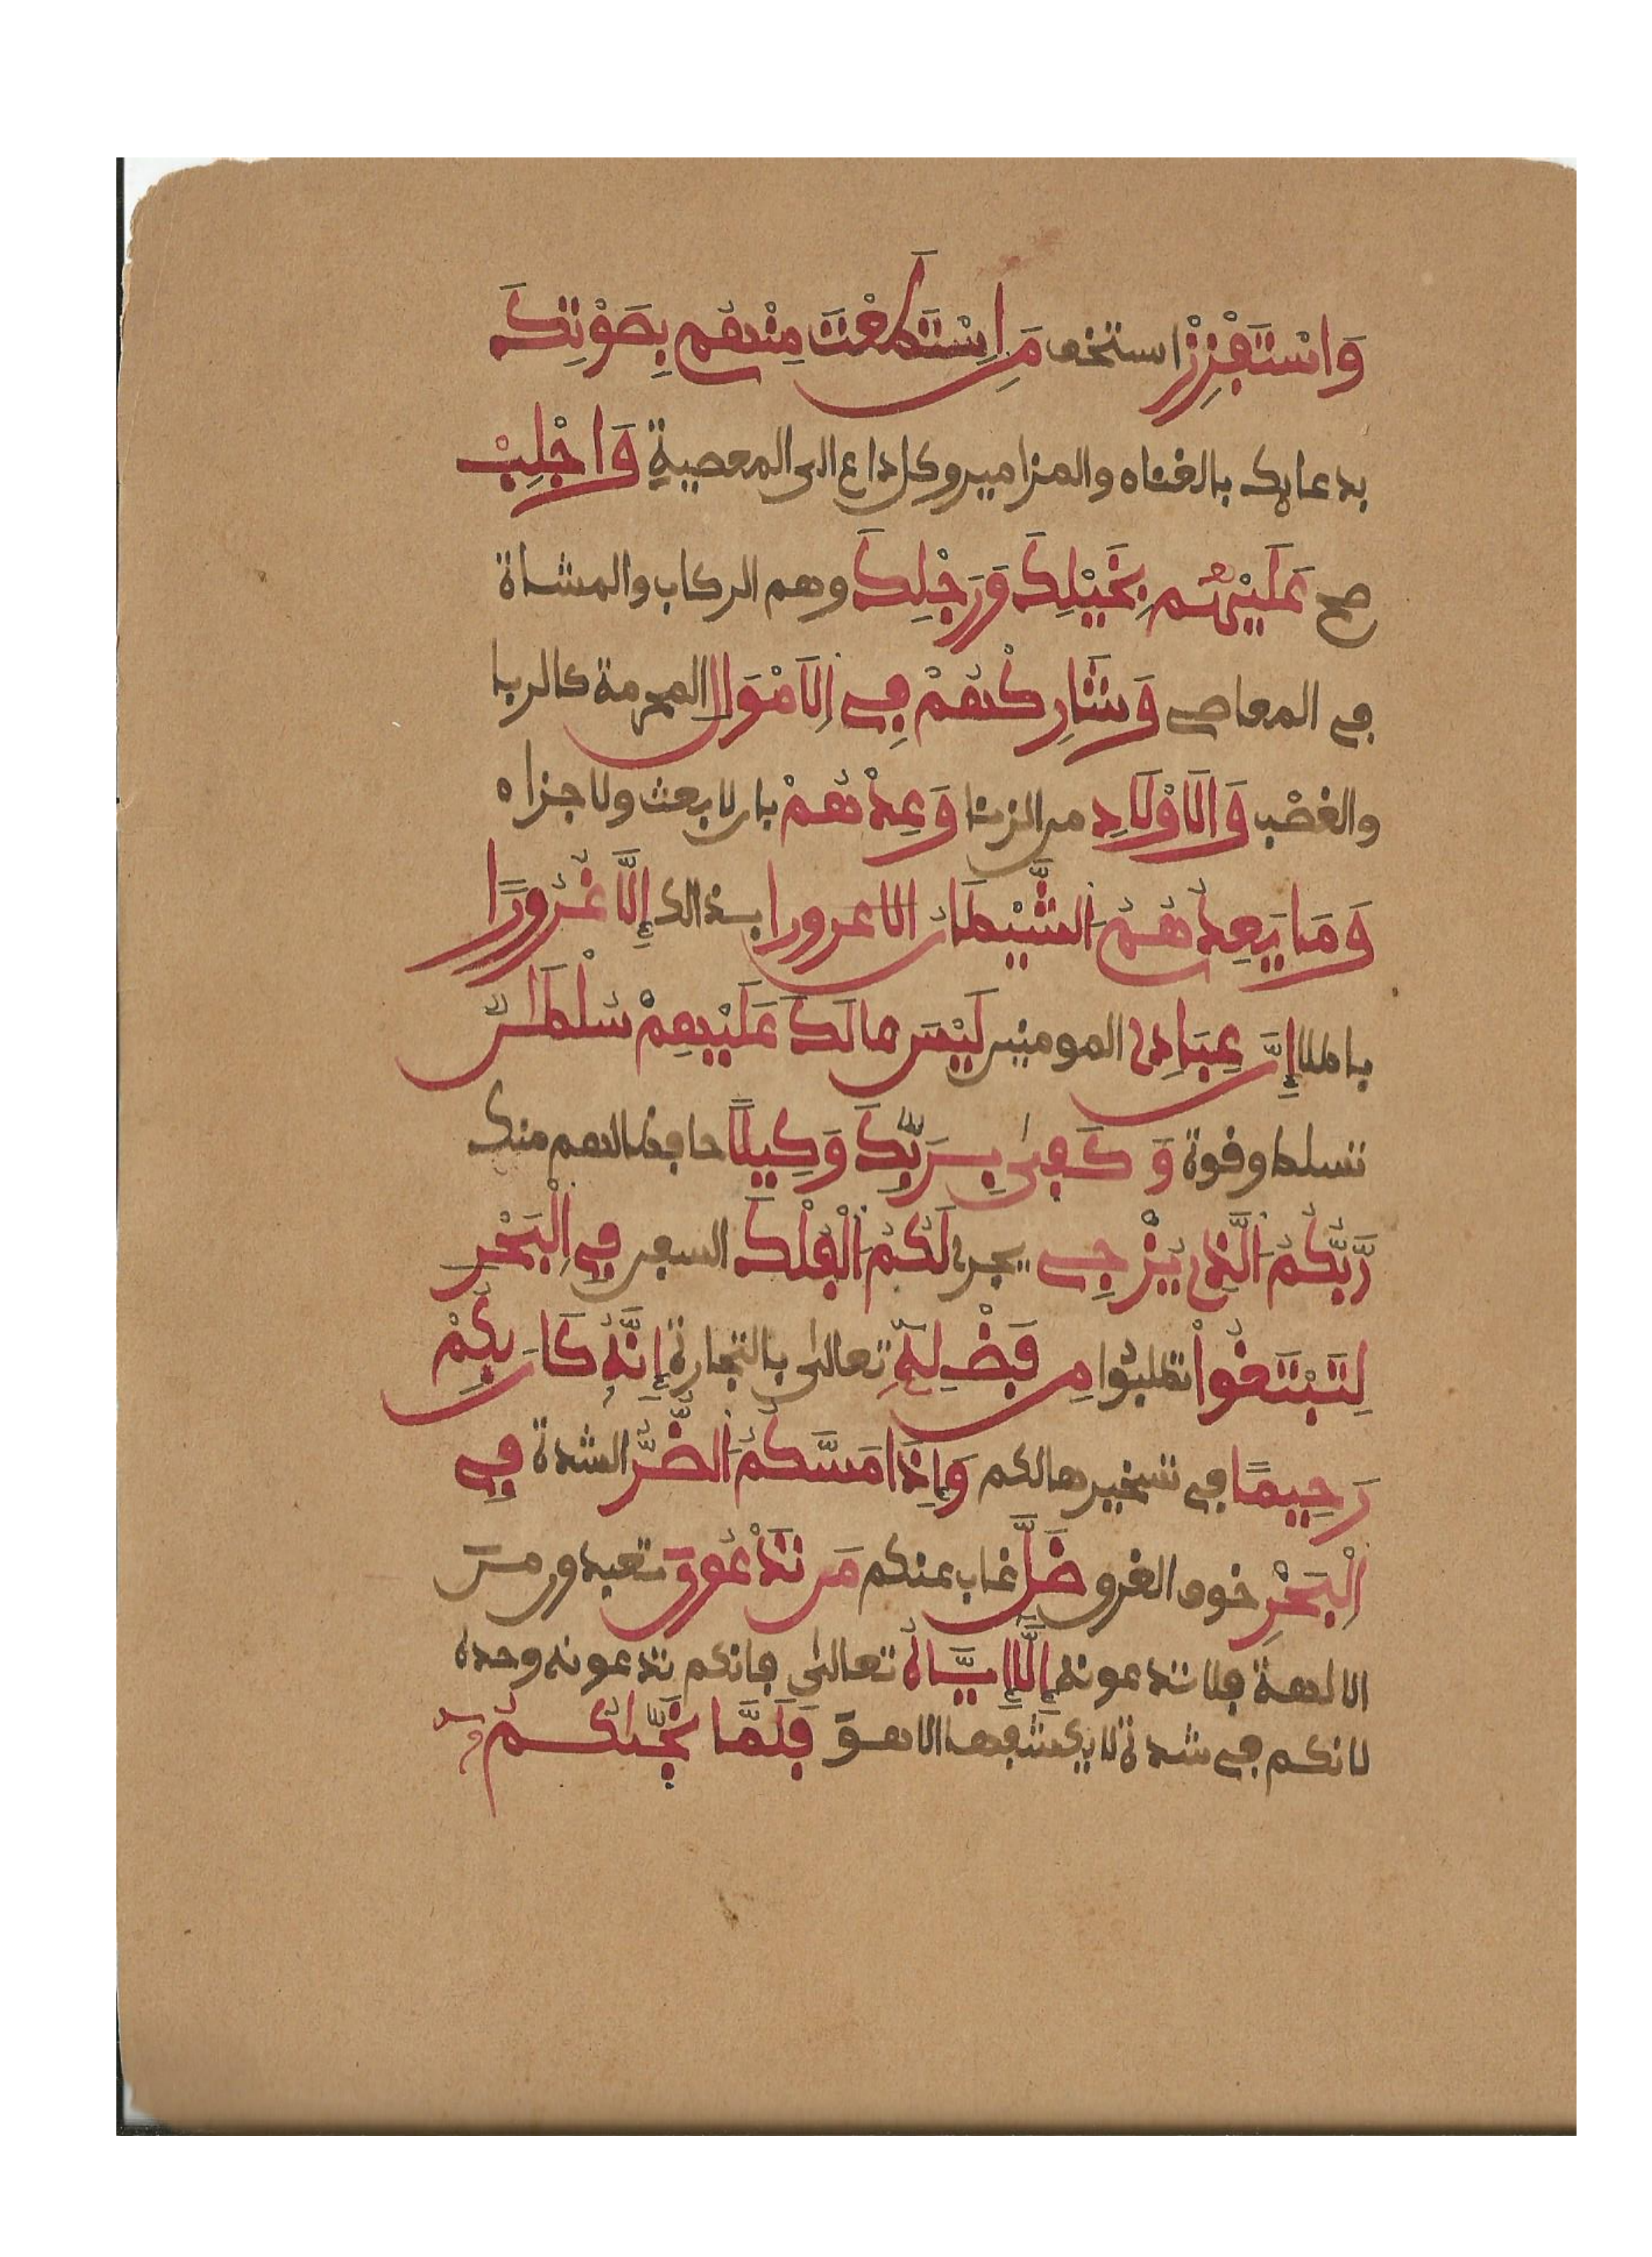 وَاسْتَفْزِزْ استخف مَنِ اِسْتَطَعْتَ مِنْهُم بِصَوْتِكَ
بدعايك بالغناء والمزامير وكل داع الى المعصية وَاجْلِبْ
صح عَلَيْهِم بِخَيْلِكَ وَرَجْلِكَ وهم الركاب والمشاة
في المعاصي وَشَارِكْهُمْ فِي اِلَامْوَالِ المحرمة كالربا
والغصْب وَالَاوْلَادِ من الزنا وَعِدْهُمْ بان لا بعث ولا جزاء
وَمَا يَعِدُهُمُ اَلشَّيْطَانُ الا غرورا بذالك إِلَّا غُرُورًا
باطلا إِنَّ عِبَادِى المومنين لَيْسَ لَكَ عَلَيْهِمْ سُلْطَانٌ
تسلط وقوة وَكَفىٰ بِرَبِّكَ وَكِيلًا حافظا لهم منك
رَّبُّكُمُ اَلَّذِى يُزْجِے يجرى لَكُمُ اَلْفُلْكَ السفن فِي اِلْبَحْرِ
لِتَبْتَغُواْ تطلبوا مِن فَضْلِهِۦٓ تعالى بالتجارة إِنَّهُۥ كَانَ بِكُمْ
رَحِيمًا في تسخيرها لكم وَإِذَا مَسَّكُمُ اَلضُّرُّ الشدة فِي
اِلْبَحْرِ خوف الغرق ضَلَّ غاب عنكم مَن تَدْعُونَ تعبدون من
الالهة فلا تدعونه إِلَّا إِيَّاهُ تعالى فانكم تدعونه وحده
لانكم في شدة لا يكشفها الا هو فَلَمَّا نَجَّىٰكُمُۥٓ